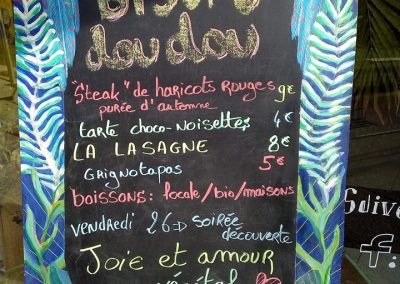 BISTRO
doudou
"Steak" de haricots Rouges 9€
purée d'automne
tarte choco-Noisettes 4€
LA LASAGNE 8€
GRignotapas 5€
boissons: locale/bio/maisons
vendredi 26⇒ soirée
découverte
Joie et amour
végétal
f